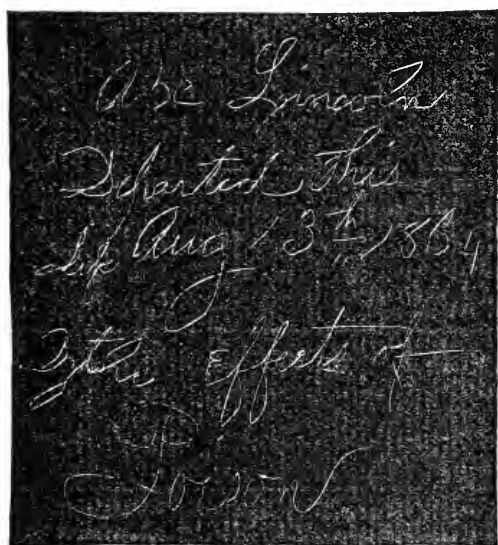 Abe Lincoln
Departed this
Life Aug 13th, 1864
By the effects of
Poison